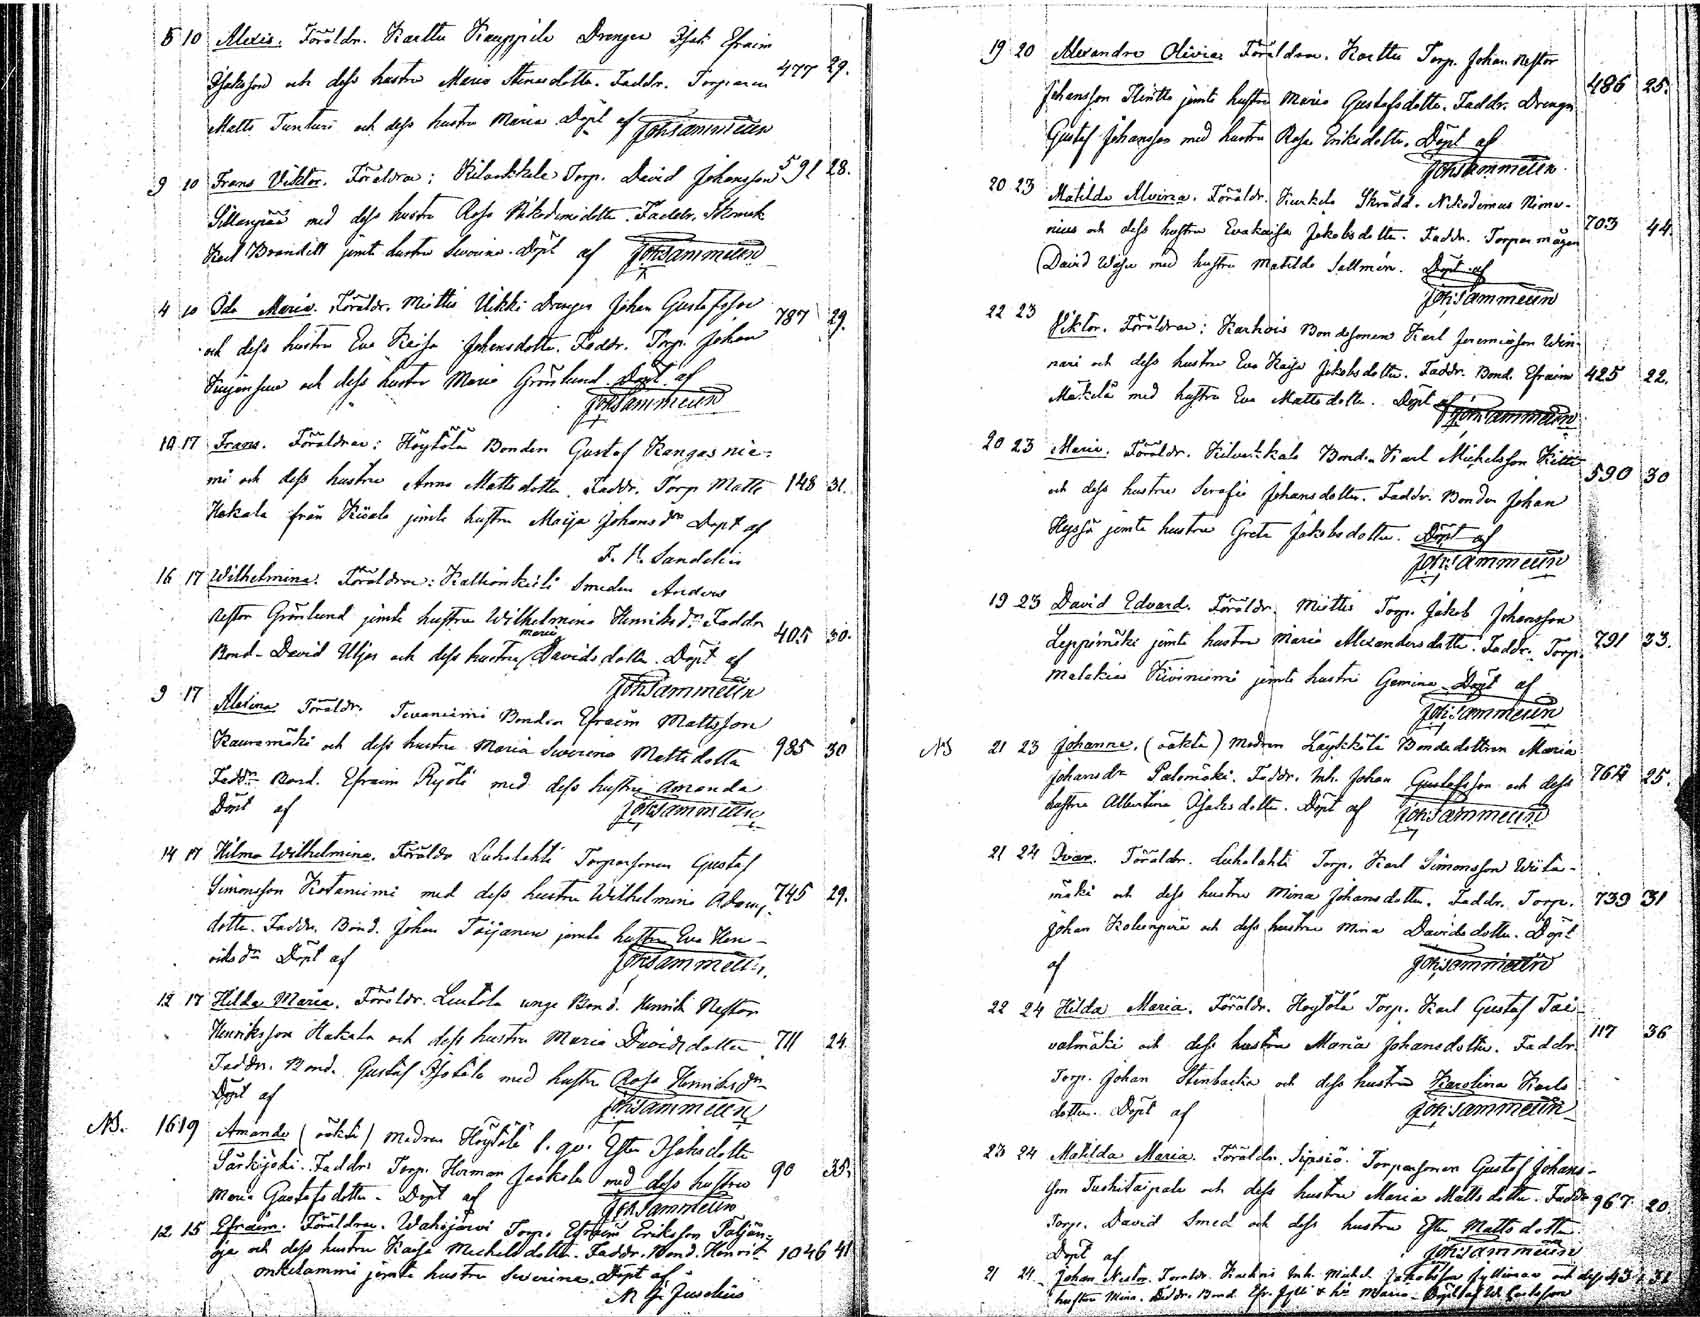 5 10 Alexis. Föräldr. Karttu Kauppila Drengen Isak Efraim
Isaksson och dess hustru Maria Stinasdotter. Faddr. Torparen 477 29.
Matts Tunturi och dess hustru Maria Döpt af Joh. Sammelin
9 10 Frans Viktor. Föräldrar; Kilvakkala Torp. David Johansson 591 28.
Sillanpää med dess hustru Rosa Nikodemidotter. Faddr. Skomak
Karl Brandell jemte hustru Severina. Döpt af Joh. Sammelin
4 10 Ida Maria. Föräldr. Miettis Ukki Drengen Johan Gustafsson 787 29.
och dess hustru Eva Kaisa Johansdotter. Faddr. Torp. Johan
och dess hustru Maria Grönlund. Döpt af
Joh. Sammelin
10 17 Frans. Föräldrar: Höytölä Bonden Gustaf Kangasnie-
mi och dess hustru Anna Mattsdotter. Faddr. Torp Matts 148 31.
Hakala från Kiiala jemte hustru Maija Johansdr Döpt af
F. K. Sandelin
16 17 Wilhelmina. Föräldrar: Kallionkieli Smeden Anders
Nestor Grönlund jemte hustru Wilhelmina Henriksdr Faddr
maria 405 30.
Bond. David Uljas och dess hustru Davidsdotter. Döpt af
Joh. Sammelin
9 17 Alexina Föräldr. Tevaniemi Bonden Efraim Mattsson
Kauramäki och dess hustru Maria Severina Mattsdotter 985 30
Faddr. Bond. Efraim Ryöti med dess hustru Amanda
Döpt af Joh. Sammelin
14 17 Hilma Wilhelmina. Föräldr Luhalahti Torparsonen Gustaf
Simonsson Kotaniemi med dess hustru Wilhelmina Adams- 745 29.
dotter. Faddr. Bond. Johan Toijanen jemte hustru Eva Hen-
riksdr Döpt af Joh. Sammelin
12 17 Hilda Maria. Föräldr. Leutola unge Bond. Henrik Nestor
Henriksson Hakala och dess hustru Maria Davidsdotter 711 24.
Faddr. Bond. Gustaf Isotalo med hustru Rosa Henriksdr
Döpt af Joh. Sammelin
NB. 16 19 Amanda (oäkta) modren Höytölä l. qv. Ester Isaksdotter
Särkijoki. Faddr. Torp. Herman Jaakola med dess hustru 90 35.
Maria Gustafsdotter - Döpt af Joh. Sammelin
12 15 Efraim. Föräldrar. Wahojärvi Torp. Efraim Eriksson Paljan-
oja och dess hustru Kaisa Michelsdotter. Faddr. Bond. Henrik 1046 41
Onkelammi jemte hustru Severina. Döpt af
M. G. Juselius
19 20 Alexandra Olivia. Föräldrar. Karttu Torp. Johan Nestor
Johansson Flintti jemte hustru Maria Gustafsdotter. Faddr. Drengen 486 25.
Gustaf Johansson med hustru Rosa Eriksdotter. Döpt af
Joh. Sammelin
20 23 Matilda Alvina. Föräldr. Kurkela Skrädd. Nikodemus Nome-
nius och dess hustru Evakaisa Jakobsdotter. Faddr. Torparmågen 703 44.
David Wasu med hustru Matilda Sallmén. Döpt af
Joh. Sammelin
22 23 Viktor. Föräldrar; Karhois Bondesonen Karl Jeremiasson Win-
nari och dess hustru Eva Kaisa Jakobsdotter. Faddr. Bond. Efraim 425 22.
Mäkelä med hustru Eva Mattsdotter. Döpt af Joh. Sammelin
20 23 Maria. Föräldr. Kilvakkala Bonden Karl Michelsson Kitti
och dess hustru Serafia Johansdotter. Faddr. Bonden Johan 590 30
Hyssjä jemte hustru Greta Jakobsdotter. Döpt af
Joh. Sammelin
19 23 David Edvard. Föräldr. Miettis Torp. Jakob Johansson
Leppimäki jemte hustru Maria Alexandersdotter. Faddr. Torp. 791 33.
Malakias Kiviniemi jemte hustru Gemina. Döpt af
Joh. Sammelin
NB 21 23 Johanna. (oäkta) Modren Läykkälä Bondedottren Maria
Johansdr Palomäki. Faddr. Inh. Johan Gustafsson och dess 764 25.
hustru Albertina Isaksdotter. Döpt af Joh. Sammelin
21 24 Ivar. Föräldr. Luhalahti Torp. Karl Simonsson Wiita-
mäki och dess hustru Mina Johansdotter. Faddr. Torp. 739 31
Johan Koivunperä och dess hustru Mina Davidsdotter. Döpt
af Joh. Sammelin
22 24 Hilda Maria. Föräldr. Höytölä Torp. Karl Gustaf Tai-
valmäki och dess hustru Maria Johansdotter. Faddr. 117 36
Torp. Johan Stenbacka och dess hustru Karolina Karls
dotter. Döpt af Joh. Sammelin
23 24 Matilda Maria. Föräldr. Sipsiö. Torparsonen Gustaf Johans-
son Tuskitaipale och dess hustru Maria Mattsdotter. Faddr 967 20
Torp. David Smed och dess hustru Ester Mattsdotter
Döpt af Joh. Sammelin
21 24 Johan Nestor. Föräldr. Karhois Inh. Michel Jakobsson Jyllinen och dess 43 31
hustru Mina. Faddr. Bond. Efr. Jylli & h:u Maria - Döpt af W. Carlsson